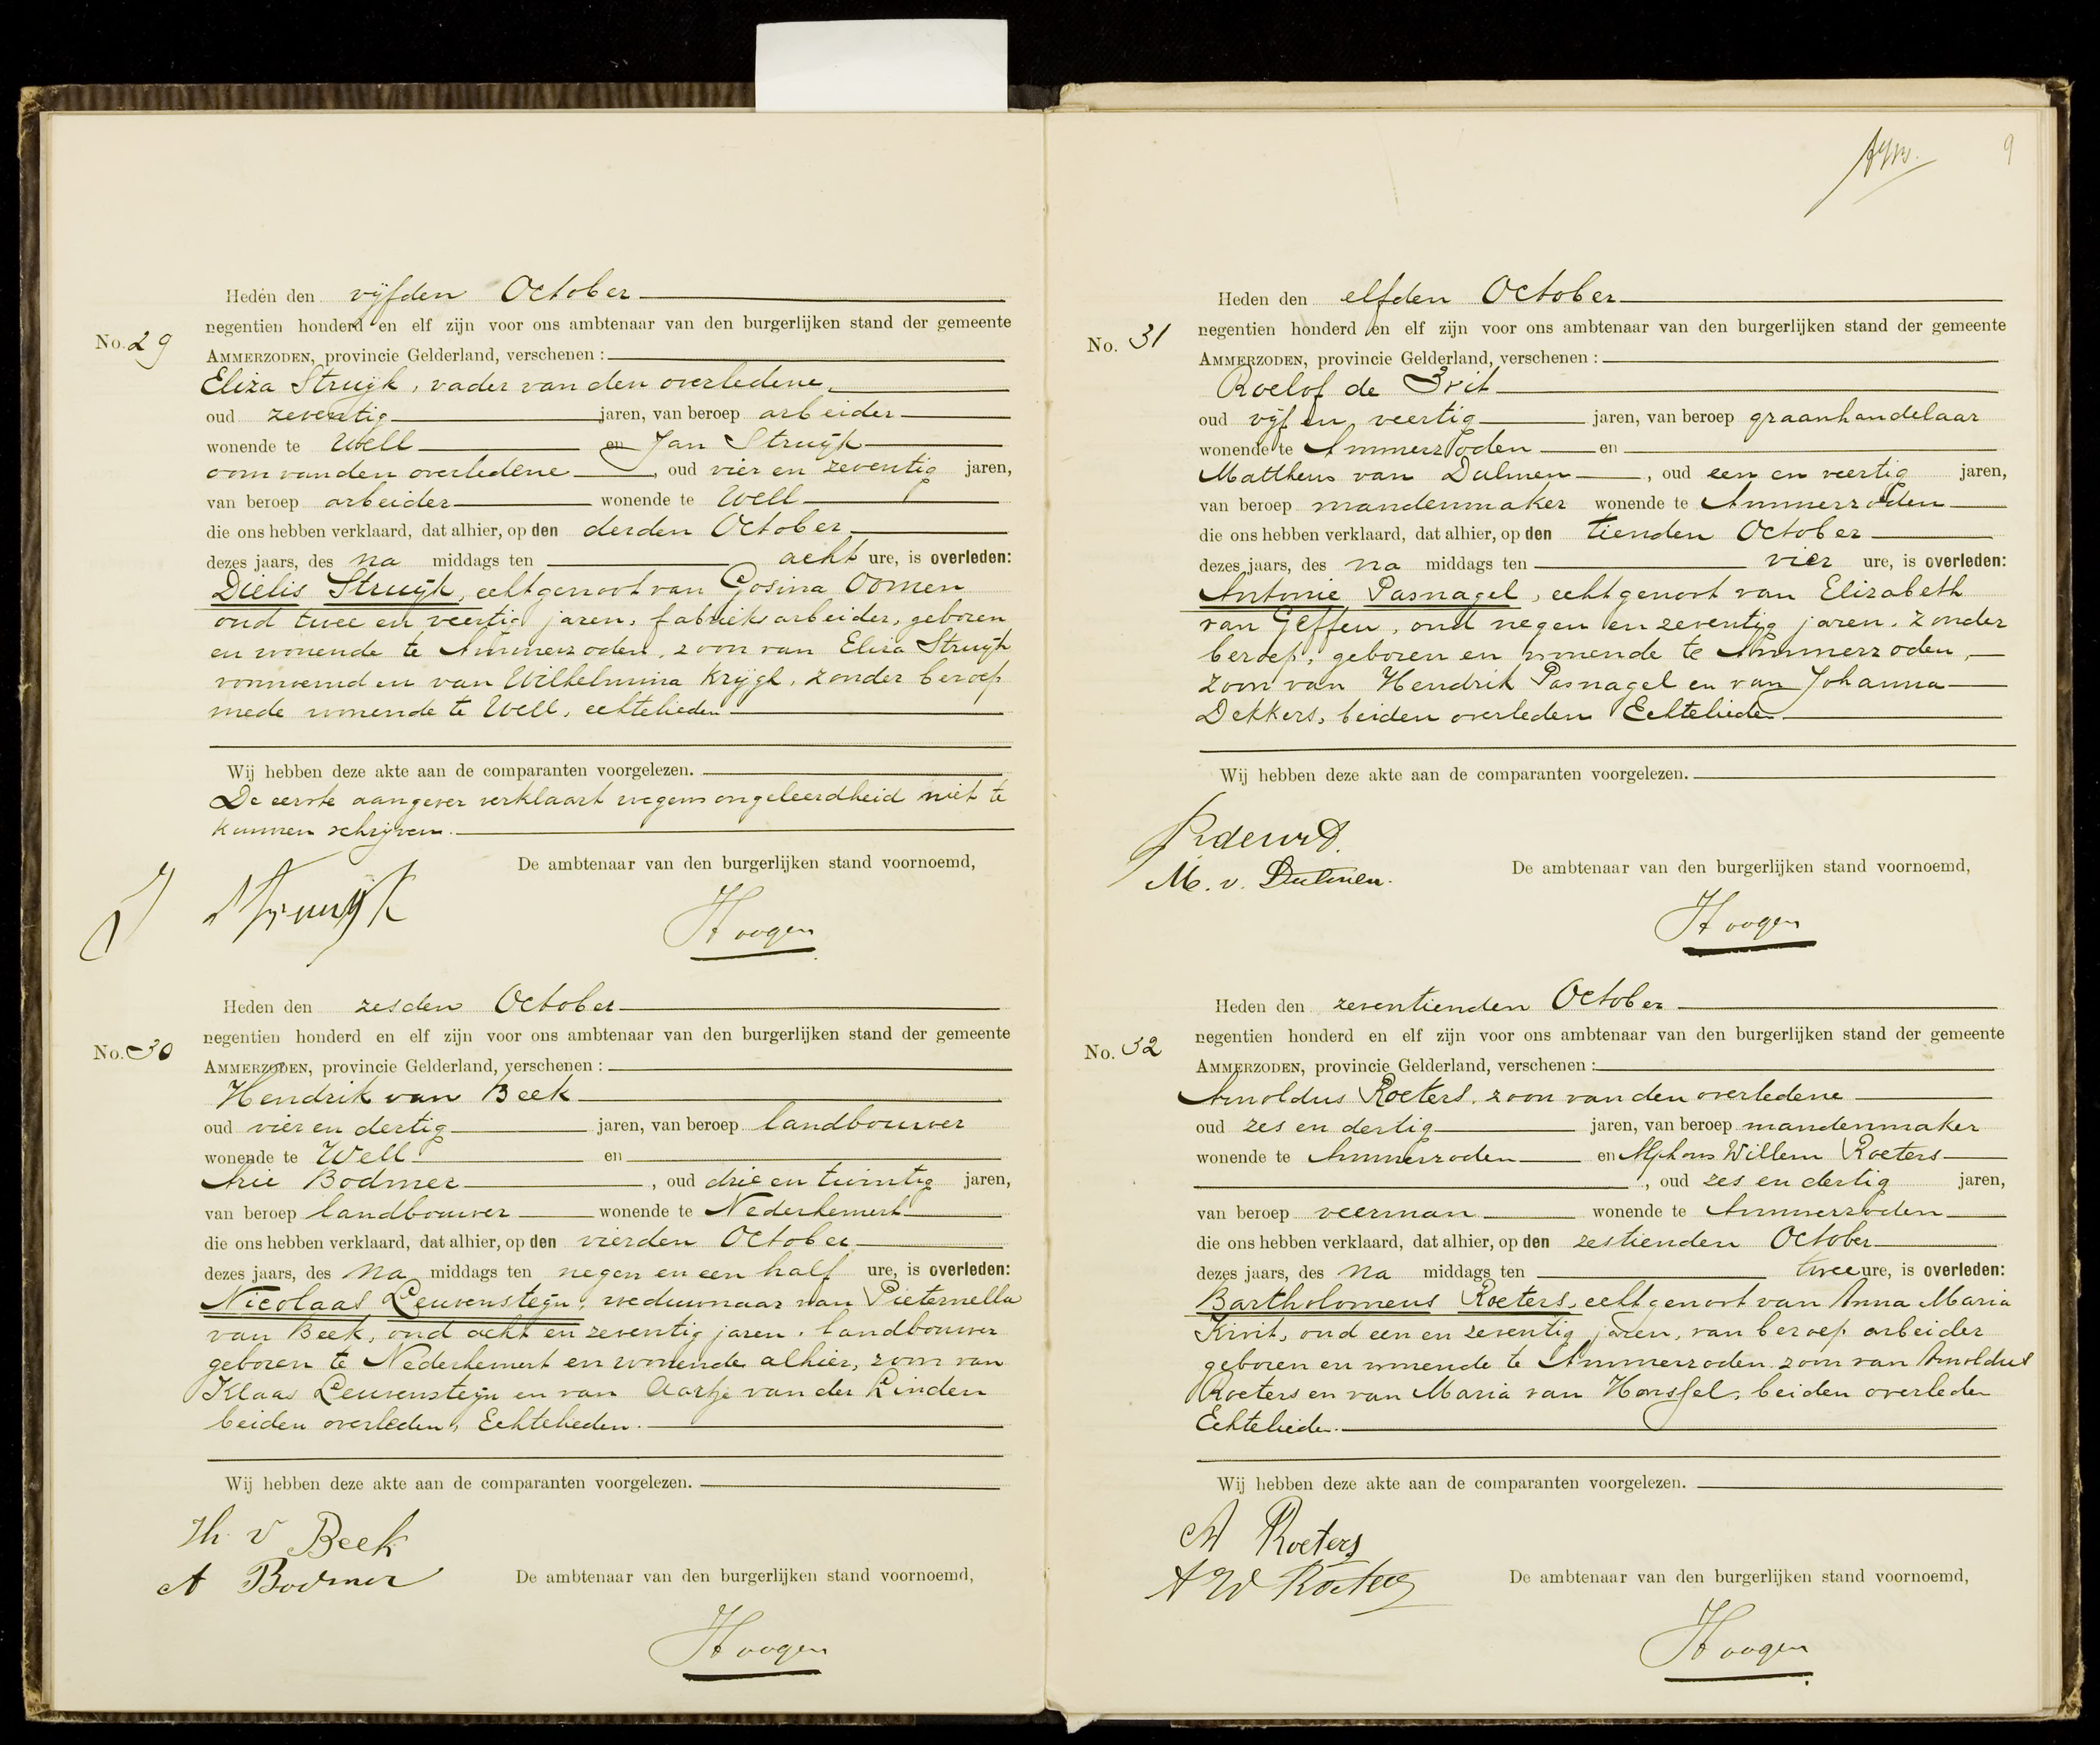 Heden den vijfden October
No. 29
negentien honderd en elf zijn voor ons ambtenaar van den burgerlijken stand der gemeente
AMMERZODEN, provincie Gelderland, verschenen :
Eliza Struijk, vader van den overledene,
oud zeventig jaren, van beroep arbeider
wonende te Well en Jan Struijk
oom van den overledene, oud vier en zeventig jaren,
van beroep arbeider wonende te Well
die ons hebben verklaard, dat alhier, op den derden October
dezes jaars, des na middags ten acht ure, is overleden:
Dielis Struijk, echtgenoot van Gosina Oomen
oud twee en veertig jaren, fabrieksarbeider, geboren
en wonende te Ammerzoden, zoon van Eliza Struijk
voornoemd en van Wilhelmina Krijgh, zonder beroep
mede wonende te Well, echtelieden
Wij hebben deze akte aan de comparanten voorgelezen.
De eerste aangever verklaart wegens ongeleerdheid niet te
kunnen schrijven.
De ambtenaar van den burgerlijken stand voornoemd,
J Struijk
Hoogen
Heden den zesden October
No. 30
negentien honderd en elf zijn voor ons ambtenaar van den burgerlijken stand der gemeente
AMMERZODEN, provincie Gelderland, verschenen :
Hendrik van Beek
oud vier en dertig jaren, van beroep landbouwer
wonende te Well en
Arie Bodmer, oud drie en twintig jaren,
van beroep landbouwer wonende te Nederhemert
die ons hebben verklaard, dat alhier, op den vierden October
dezes jaars, des na middags ten negen en een half ure, is overleden:
Nicolaas Leuvensteijn, weduwnaar van Pieternella
van Beek, oud acht en zeventig jaren, landbouwer
geboren te Nederhemert en wonende alhier, zoon van
Klaas Leuvensteijn en van Aartje van der Linden
beiden overleden, Echtelieden.
Wij hebben deze akte aan de comparanten voorgelezen.
H v Beek
A Bodmer
De ambtenaar van den burgerlijken stand voornoemd,
Hoogen
9
Heden den elfden October
No. 31
negentien honderd en elf zijn voor ons ambtenaar van den burgerlijken stand der gemeente
AMMERZODEN, provincie Gelderland, verschenen :
Roelof de
oud vijf en veertig jaren, van beroep graanhandelaar
wonende te Ammerzoden en
Mattheus van Dulmen, oud een en veertig jaren,
van beroep mandenmaker wonende te Ammerzoden
die ons hebben verklaard, dat alhier, op den tienden October
dezes jaars, des na middags ten vier ure, is overleden:
Antonie Pasnagel, echtgenoot van Elizabeth
van Geffen, oud negen en zeventig jaren. zonder
beroep, geboren en wonende te Ammerzoden,
zoon van Hendrik Pasnagel en van Johanna
Dekkers, beiden overleden Echtelieden
Wij hebben deze akte aan de comparanten voorgelezen.
M. v. Dulmen.
De ambtenaar van den burgerlijken stand voornoemd,
Hoogen
Heden den zeventienden October
No. 32
negentien honderd en elf zijn voor ons ambtenaar van den burgerlijken stand der gemeente
AMMERZODEN, provincie Gelderland, verschenen :
Arnoldus Roeters, zoon van den overledene
oud zes en dertig jaren, van beroep mandenmaker
wonende te Ammerzoden en Alphons Willem Roeters
, oud zes en dertig jaren,
van beroep veerman wonende te Ammerzoden
die ons hebben verklaard, dat alhier, op den zestienden October
dezes jaars, des na middags ten twee ure, is overleden:
Bartholomeus Roeters, echtgenoot van Anna Maria
oud een en zeventig jaren, van beroep arbeider
geboren en wonende te Ammerzoden zoon van Arnoldus
Roeters en van Maria van Honsfel, beiden overleden
Echtelieden.
Wij hebben deze akte aan de comparanten voorgelezen.
A Roeters
A W Roeters
De ambtenaar van den burgerlijken stand voornoemd,
Hoogen